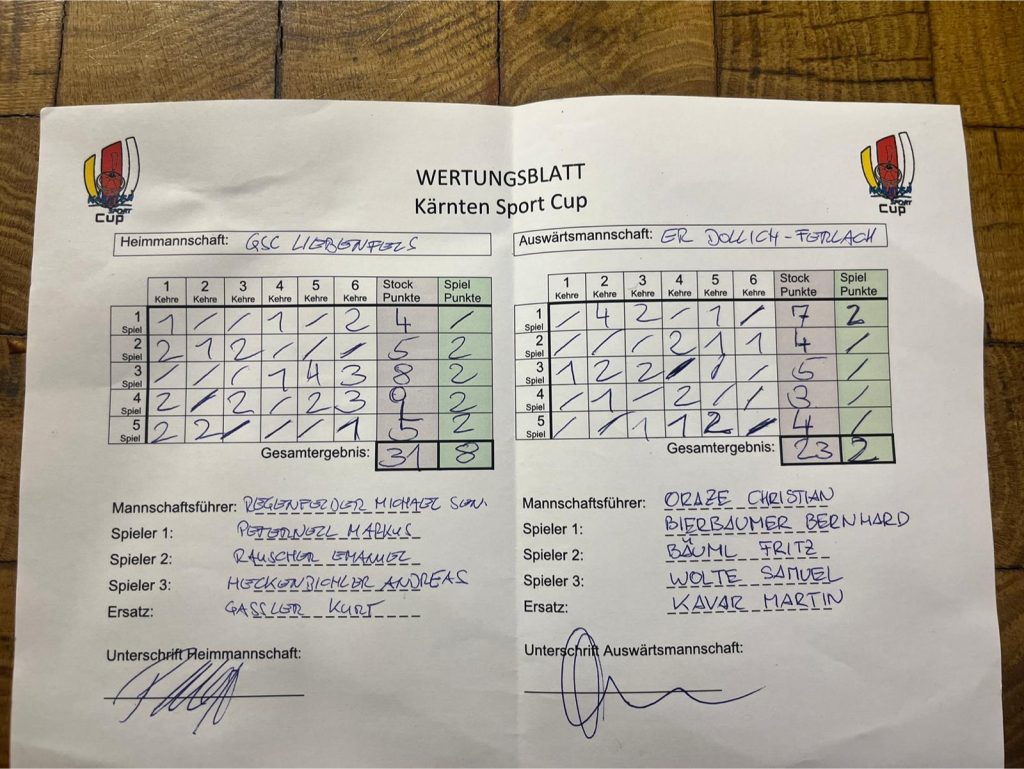 WERTUNGSBLATT
Kärnten Sport Cup
SPORT
Cup
SPORT
Cup
Heimmannschaft: GSC LIEBENFELS
1 Kehre 2 Kehre 3 Kehre 4 Kehre 5 Kehre 6 Kehre Stock Punkte Spiel Punkte
1 Spiel 1 / / 1 / 2 4 /
2 Spiel 2 1 2 / / / 5 2
3 Spiel / / / 1 4 3 8 2
4 Spiel 2 / 2 / 2 3 9 2
5 Spiel 2 2 / / / 1 5 2
Gesamtergebnis: 31 8
Mannschaftsführer: MICHAEL SEN.
Spieler 1: PETERNELL MARKUS
Spieler 2: RAUSCHER EMANUEL
Spieler 3: HECKENBICHLER ANDREAS
Ersatz: GASSLER KURT
Unterschrift Heimmannschaft:
Auswärtsmannschaft: ER DOLLICH-FERLACH
1 Kehre 2 Kehre 3 Kehre 4 Kehre 5 Kehre 6 Kehre Stock Punkte Spiel Punkte
1 Spiel / 4 2 / 1 / 7 2
2 Spiel / / / 2 1 1 4 /
3 Spiel 1 2 2 / / / 5 /
4 Spiel / 1 / 2 / / 3 /
5 Spiel / / 1 1 2 / 4 /
Gesamtergebnis: 23 2
Mannschaftsführer: ORAZE CHRISTIAN
Spieler 1: BIERBAUMER BERNHARD
Spieler 2: BÄUML FRITZ
Spieler 3: WOLTE SAMUEL
Ersatz: KAVAR MARTIN
Unterschrift Auswärtsmannschaft: